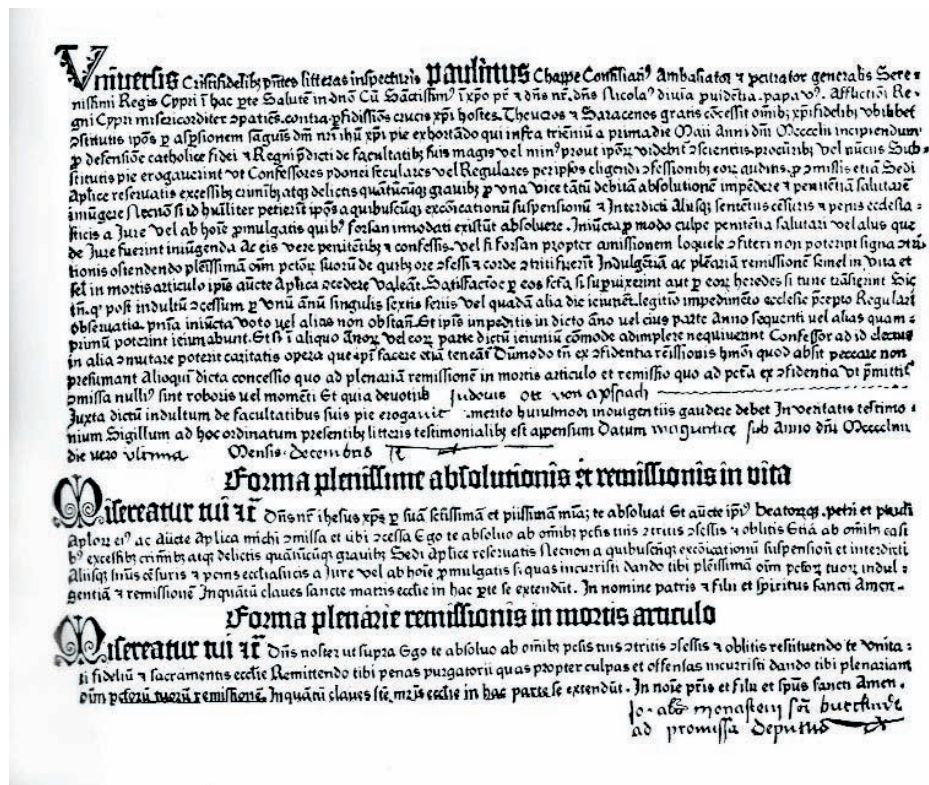 Vniuersis Cristifidelibꝫ pñtes litteras inspecturis Paulinus Chappe Consiliari⁹ Ambasiator ⁊ ꝓcurator generalis Sere-
nissimi Regis Cypri ī hac ꝑte Salutē in dño Cū Sāctissim⁹ ī xp̄o pr̄ ⁊ dñs nr̄. dñs Nicola⁹ diuīa ꝓuidētia. papa v⁹. Afflictōi Re-
gni Cypri misericorditer ꝯpatiēs. contra. ꝑfidissiōs crucis xp̄i hostes. Theucros ⁊ Saracenos gratis cōcessit omībꝫ xp̄ifidelibꝫ vbilibet
ꝯstitutis ip̄os ꝑ aspsionem sāguīs dñi nr̄i ihū xp̄i pie exhortādo qui infra trieniū a prima die Maii Anni dñi Mcccclii incipiendum
ꝓ defensiōe catholice fidei ⁊ Regni p̄dicti de facultatibꝫ suis magis vel min⁹ prout ip̄oꝝ videbit̄ ꝯscientiis. procūribꝫ vel nūciis Sub-
stitutis pie erogauerint vt Confessores ydonei seculares vel Regulares per ip̄os eligendi ꝯfessionibꝫ eoꝝ auditis. ꝓ ꝯmissis etiā Sedi
Aplice reseruatis excessibꝫ crimībꝫ atqꝫ delictis quātūcūqꝫ grauibꝫ ꝓ vna vice tātū debitā absolutionē impēdere ⁊ penitētiā salutarē
iniūgere Necnō si id hūiliter petierīt ip̄os a quibuscūqꝫ excōicationū suspensionū ⁊ Interdicti Aliisqꝫ sentētiis cēsuris ⁊ penis ecclesia-
sticis a Jure vel ab hoīe ꝓmulgatis quibꝫ forsan innodati existūt absoluere. Iniūcta ꝓ modo culpe penitētia salutari vel aliis que
de Jure fuerint iniūgenda Ac eis vere penitētibꝫ ⁊ confessis. vel si forsan propter amissionem loquele ꝯfiteri non poterīt signa ꝯtri-
tionis ostendendo pleīssimā oīm pctōꝝ suoꝝ de quibꝫ ore ꝯfessi ⁊ corde ꝯtriti fuerīt Indulgētiā ac plenariā remissionē semel in vita et
sel in mortis articulo ip̄is aucte Aplica ꝯcedere valeāt. Satisfactōe ꝑ eos fcta si supuixerint aut ꝑ eoꝝ heredes si tunc trāsierint Sic
tñ. qꝫ post indultū ꝯcessum ꝑ vnū annū singulis sextis feriis vel quadā alia die ieiunēt. legitīo impedimēto ecclesie p̄cepto Regulari
obseruātia. pn̄ia iniūcta voto vel alias non obstañ. Et ip̄is impeditis in dicto āno vel eius parte Anno sequenti vel alias quam-
primū poterint ieiunabunt. Et si ī aliquo ānoꝝ vel eoꝝ parte dictū ieiuniū cōmode adimplere nequiuerint Confessor ad id electus
in alia ꝯmutare poterit caritatis opera que ip̄i facere etiā teneāt̄ Dūmodo tñ ex ꝯfidentia remissionis hmōi quod absit peccare non
presumant Alioqui dicta concessio quo ad plenariā remissionē in mortis articulo et remissio quo ad pctā ex ꝯfidentia vt p̄mittit̄
ꝯmissa nulli⁹ sint roboris vel momēti Et quia deuoti
Juxta dictū indultum de facultatibus suis pie erogauit merito huiusmodi indulgentiis gaudere debet In veritatis testimo-
nium Sigillum ad hoc ordinatum presentibꝫ litteris testimonialibꝫ est appensum Datum maguntie sub Anno dñi Mccccliiii
die vero vltima Mensis. decembris
Forma plenissime absolutionis et remissionis in vita
Misereatur tui ⁊c̄ Dñs nr̄ ihesus xp̄s ꝑ suā sctissimā et piissimā mīaꝫ; te absoluat Et aucte ip̄i⁹ beatorūqꝫ. petri et pauli
Aploꝝ ei⁹ ac aucte Aplica michi ꝯmissa et tibi ꝯcessa Ego te absoluo ab omībꝫ pctis tuis ꝯtritis ꝯfessis ⁊ oblitis Etiā ab omībꝫ casi
bꝫ excessibꝫ crimībꝫ atqꝫ delictis quātūcūqꝫ grauibꝫ Sedi Aplice reseruatis Necnon a quibuscūqꝫ excōicationū suspensionū et interdicti
Aliisqꝫ sniis cēsuris ⁊ penis ecclīasticis a Jure vel ab hoīe ꝓmulgatis si quas incurristi dando tibi plēissimā oīm pctoꝝ tuoꝝ indul-
gentiā ⁊ remissionē Inquātū claues sancte matris ecclīe in hac ꝑte se extendūt. In nomine patris ⁊ filii et spiritus sancti Amen.
Forma plenarie remissionis in mortis articulo
Misereatur tui ⁊c̄ Dñs noster vt supra Ego te absoluo ab omībꝫ pctis tuis ꝯtritis ꝯfessis ⁊ oblitis restituendo te vnita-
ti fideliū ⁊ sacramentis ecclīe Remittendo tibi penas purgatorii quas propter culpas et offensas incurristi dando tibi plenariam
oīm pctōrū tuorū remissionē. Inquātū claues scē mr̄is ecclīe in hac parte se extendūt. In noīe pr̄is et filii et sp̄us sancti Amen.
ad promissa deputatus